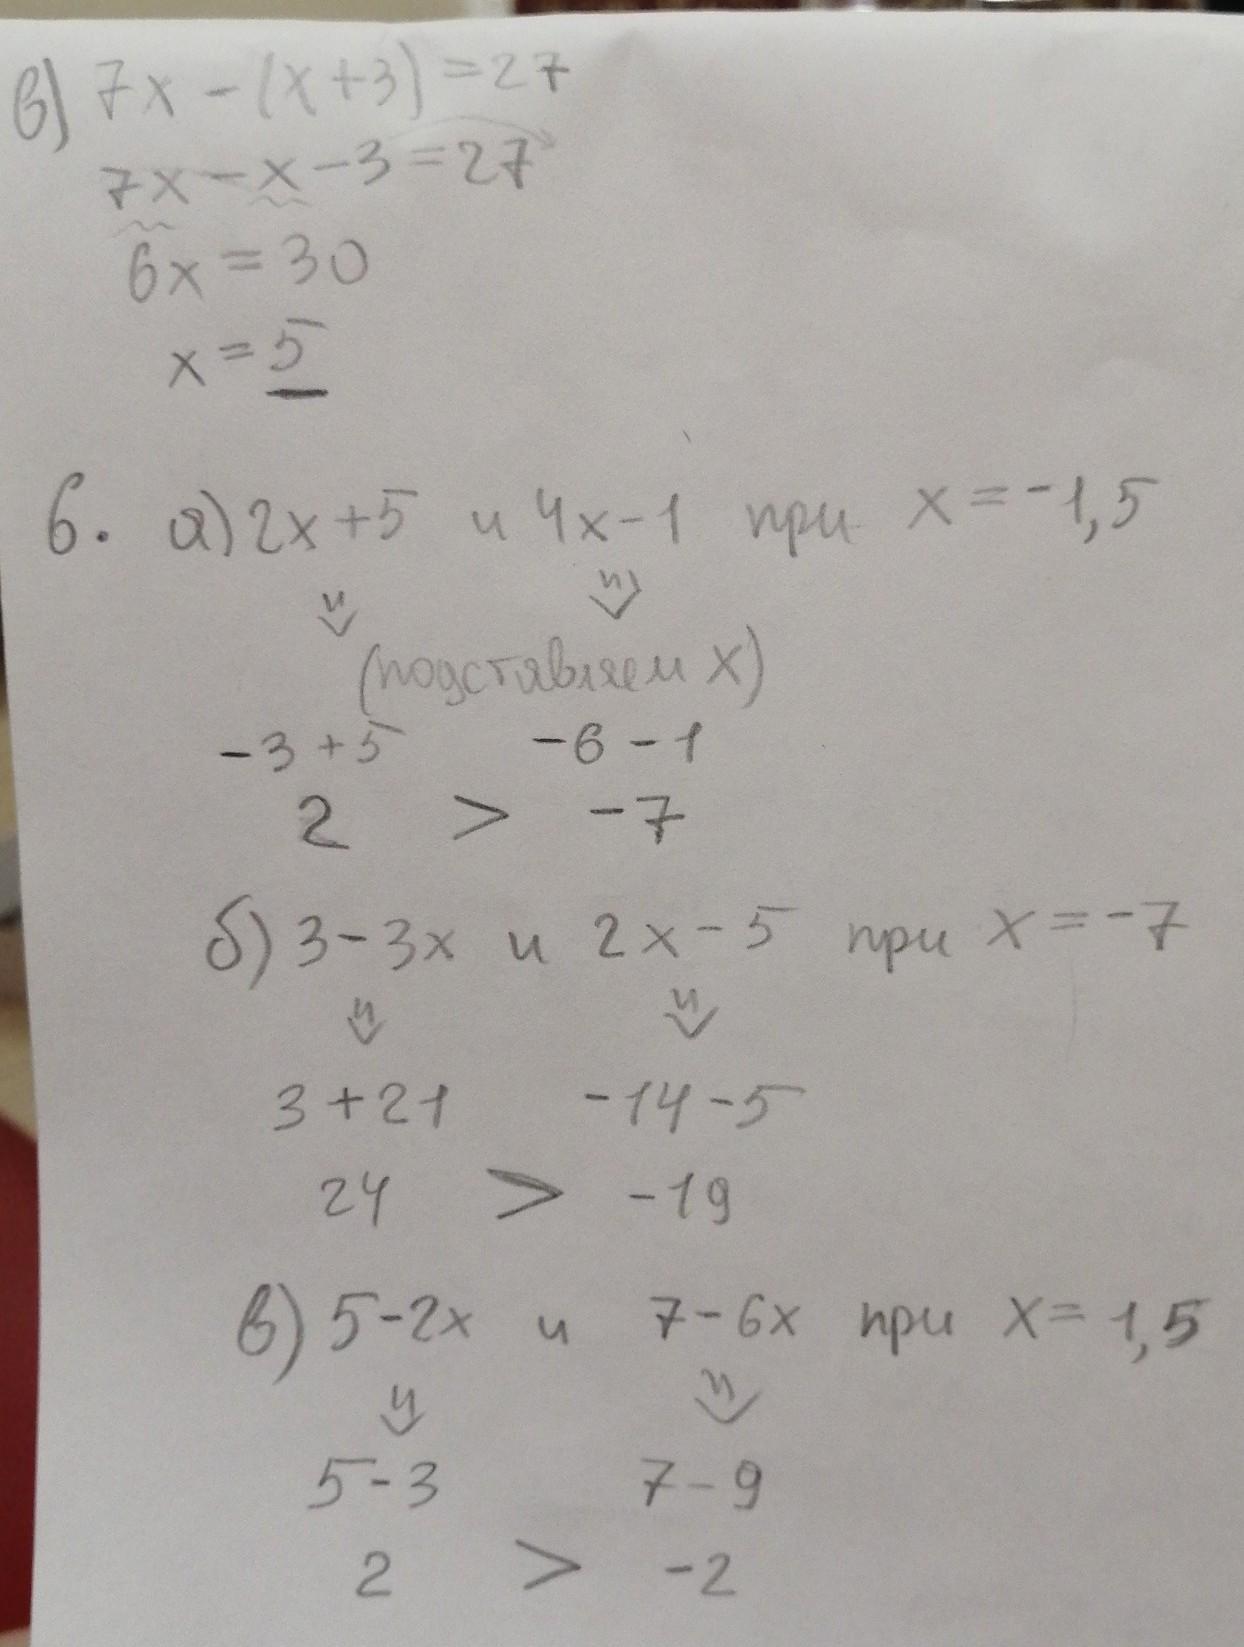 в) 7x - (x+3) = 27
7x - x - 3 = 27
6x = 30
x = 5
6. а) 2x+5 и 4x-1 при x = -1,5
(подставляем x)
-3+5 -6-1
2 > -7
б) 3-3x и 2x-5 при x = -7
3+21 -14-5
24 > -19
в) 5-2x и 7-6x при x = 1,5
5-3 7-9
2 > -2